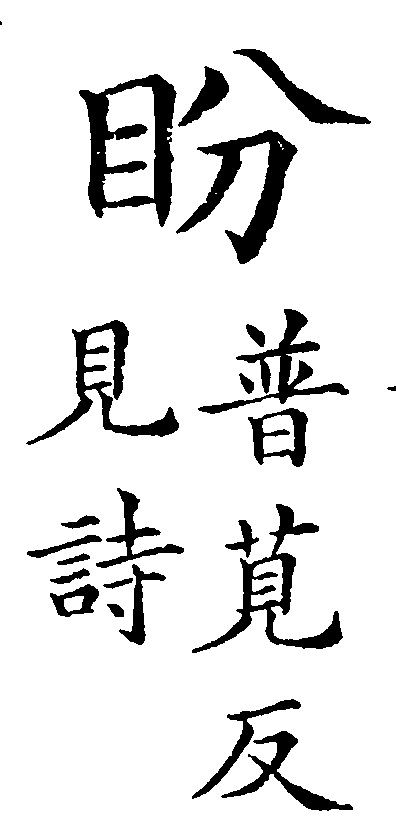 盼
普莧反
見詩